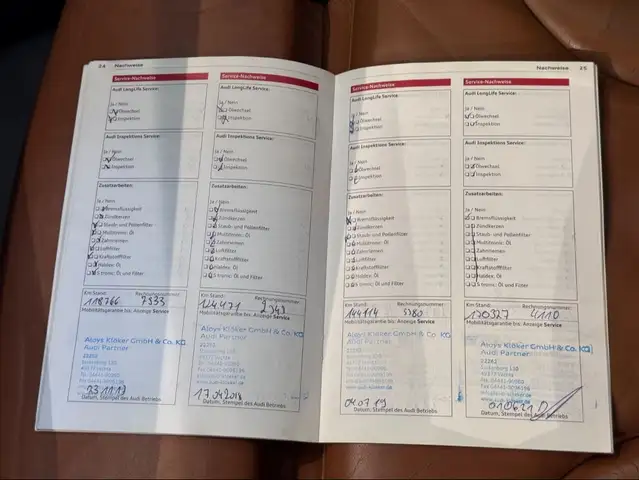 24 Nachweise
Service-Nachweise
Audi LongLife Service:
Ja / Nein
Ölwechsel
Inspektion
Audi Inspektions Service:
Ja / Nein
Ölwechsel
Inspektion
Zusatzarbeiten:
Ja / Nein
Bremsflüssigkeit
Zündkerzen
Staub- und Pollenfilter
Multitronic-Öl
Zahnriemen
Luftfilter
Kraftstofffilter
Haldex-Öl
S tronic: Öl und Filter
Km Stand: Rechnungsnummer:
118766 7933
Mobilitätsgarantie bis: Anzeige Service
Aloys Klöker GmbH & Co. KG
Audi Partner
Datum, Stempel des Audi Betriebs
Service-Nachweise
Audi LongLife Service:
Ja / Nein
Ölwechsel
Inspektion
Audi Inspektions Service:
Ja / Nein
Ölwechsel
Inspektion
Zusatzarbeiten:
Ja / Nein
Bremsflüssigkeit
Zündkerzen
Staub- und Pollenfilter
Multitronic-Öl
Zahnriemen
Luftfilter
Kraftstofffilter
Haldex-Öl
S tronic: Öl und Filter
Km Stand: Rechnungsnummer:
124471
Mobilitätsgarantie bis: Anzeige Service
Aloys Klöker GmbH & Co. KG
Audi Partner
17.04.2018
Datum, Stempel des Audi Betriebs
Nachweise 25
Service-Nachweise
Audi LongLife Service:
Ja / Nein
Ölwechsel
Inspektion
Audi Inspektions Service:
Ja / Nein
Ölwechsel
Inspektion
Zusatzarbeiten:
Ja / Nein
Bremsflüssigkeit
Zündkerzen
Staub- und Pollenfilter
Multitronic-Öl
Zahnriemen
Luftfilter
Kraftstofffilter
Haldex-Öl
S tronic: Öl und Filter
Km Stand: Rechnungsnummer:
Mobilitätsgarantie bis: Anzeige Service
Aloys Klöker GmbH & Co. KG
Audi Partner
04.07.19
Datum, Stempel des Audi Betriebs
Service-Nachweise
Audi LongLife Service:
Ja / Nein
Ölwechsel
Inspektion
Audi Inspektions Service:
Ja / Nein
Ölwechsel
Inspektion
Zusatzarbeiten:
Ja / Nein
Bremsflüssigkeit
Zündkerzen
Staub- und Pollenfilter
Multitronic-Öl
Zahnriemen
Luftfilter
Kraftstofffilter
Haldex-Öl
S tronic: Öl und Filter
Km Stand: Rechnungsnummer:
4110
Mobilitätsgarantie bis: Anzeige Service
Aloys Klöker GmbH & Co. KG
Audi Partner
Datum, Stempel des Audi Betriebs